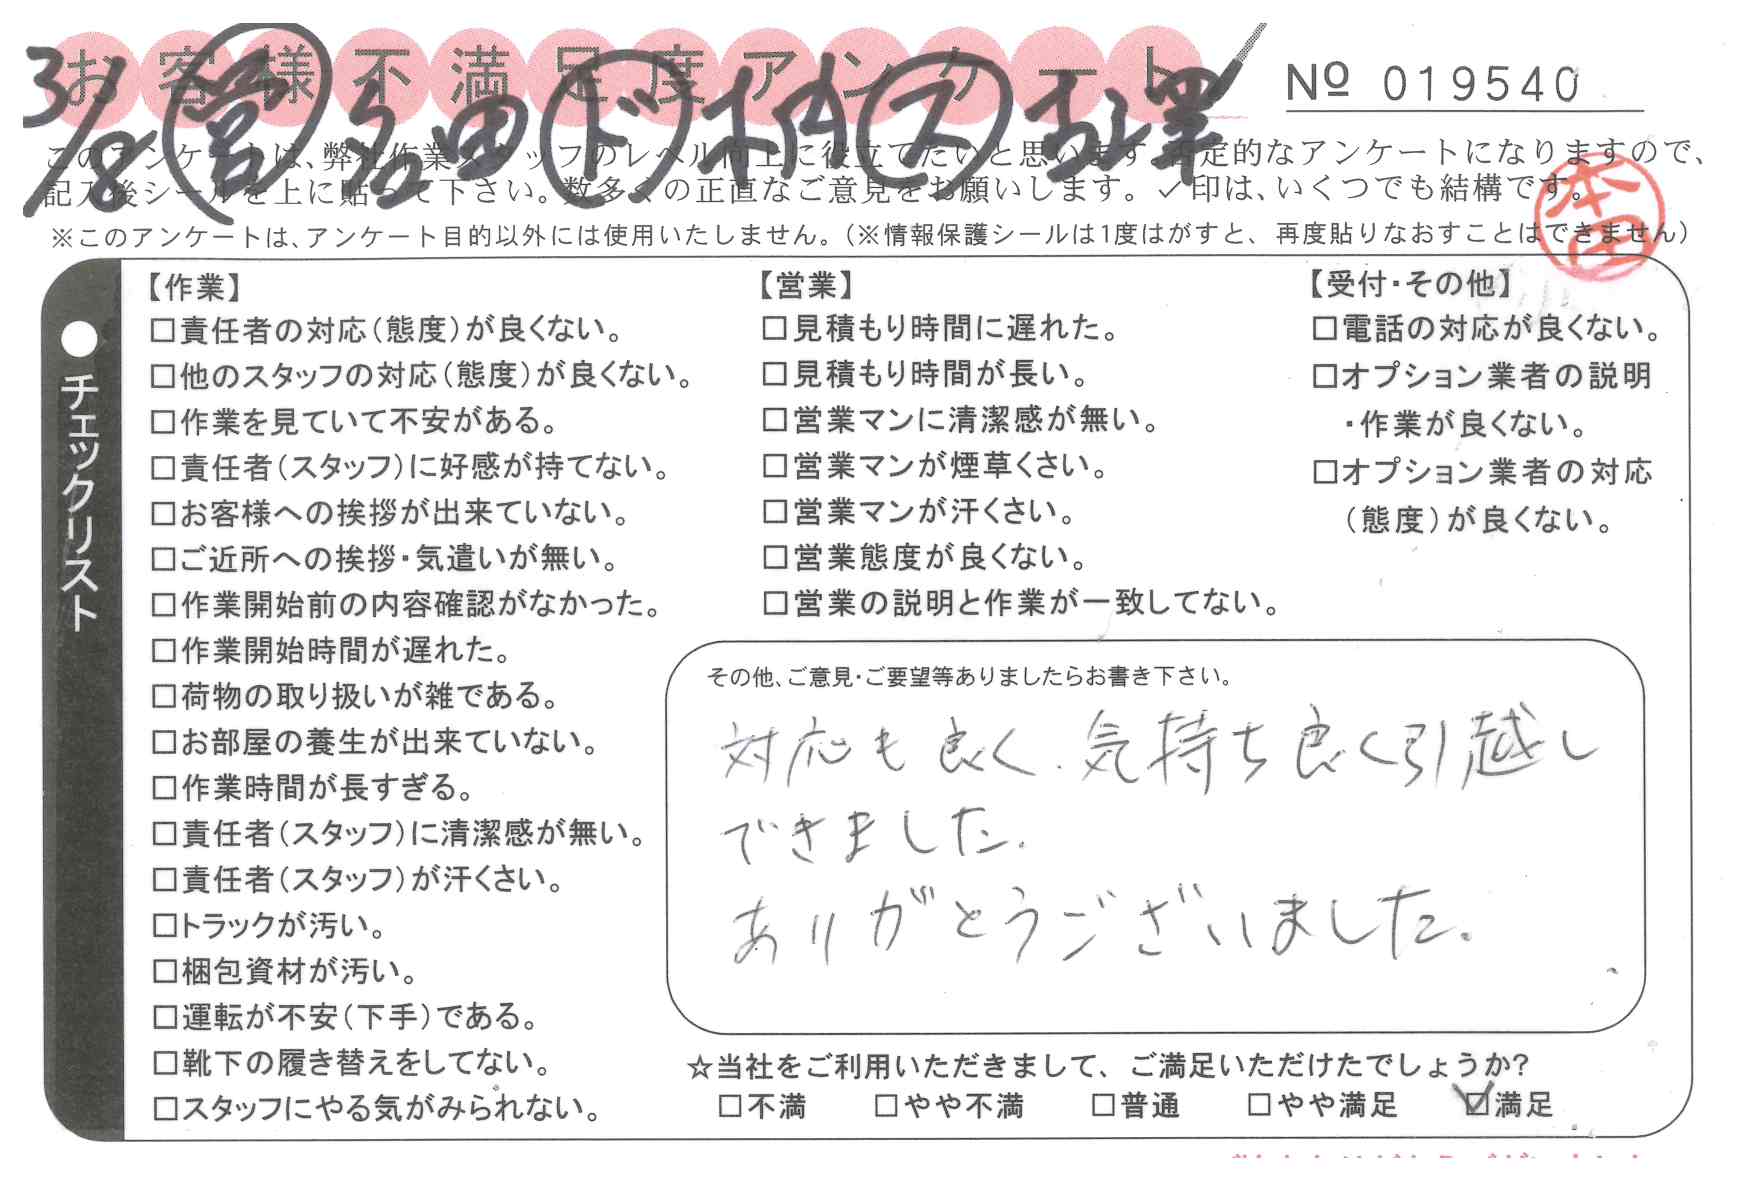 お客様不満足度アンケート
3/8 営 弘田 ド 柄 ス
№ 019540
このアンケートは、弊社作業スタッフのレベル向上に役立てたいと思います。否定的なアンケートになりますので、
記入後シールを上に貼って下さい。数多くの正直なご意見をお願いします。✓印は、いくつでも結構です。
本田
※このアンケートは、アンケート目的以外には使用いたしません。（※情報保護シールは1度はがすと、再度貼りなおすことはできません）
●チェックリスト
【作業】
□責任者の対応（態度）が良くない。
□他のスタッフの対応（態度）が良くない。
□作業を見ていて不安がある。
□責任者（スタッフ）に好感が持てない。
□お客様への挨拶が出来ていない。
□ご近所への挨拶・気遣いが無い。
□作業開始前の内容確認がなかった。
□作業開始時間が遅れた。
□荷物の取り扱いが雑である。
□お部屋の養生が出来ていない。
□作業時間が長すぎる。
□責任者（スタッフ）に清潔感が無い。
□責任者（スタッフ）が汗くさい。
□トラックが汚い。
□梱包資材が汚い。
□運転が不安（下手）である。
□靴下の履き替えをしてない。
□スタッフにやる気がみられない。
【営業】
□見積もり時間に遅れた。
□見積もり時間が長い。
□営業マンに清潔感が無い。
□営業マンが煙草くさい。
□営業マンが汗くさい。
□営業態度が良くない。
□営業の説明と作業が一致してない。
【受付・その他】
□電話の対応が良くない。
□オプション業者の説明
・作業が良くない。
□オプション業者の対応
（態度）が良くない。
その他、ご意見・ご要望等ありましたらお書き下さい。
対応も良く、気持ち良く引越し
できました。
ありがとうございました。
☆当社をご利用いただきまして、ご満足いただけたでしょうか?
□不満 □やや不満 □普通 □やや満足 ☑満足